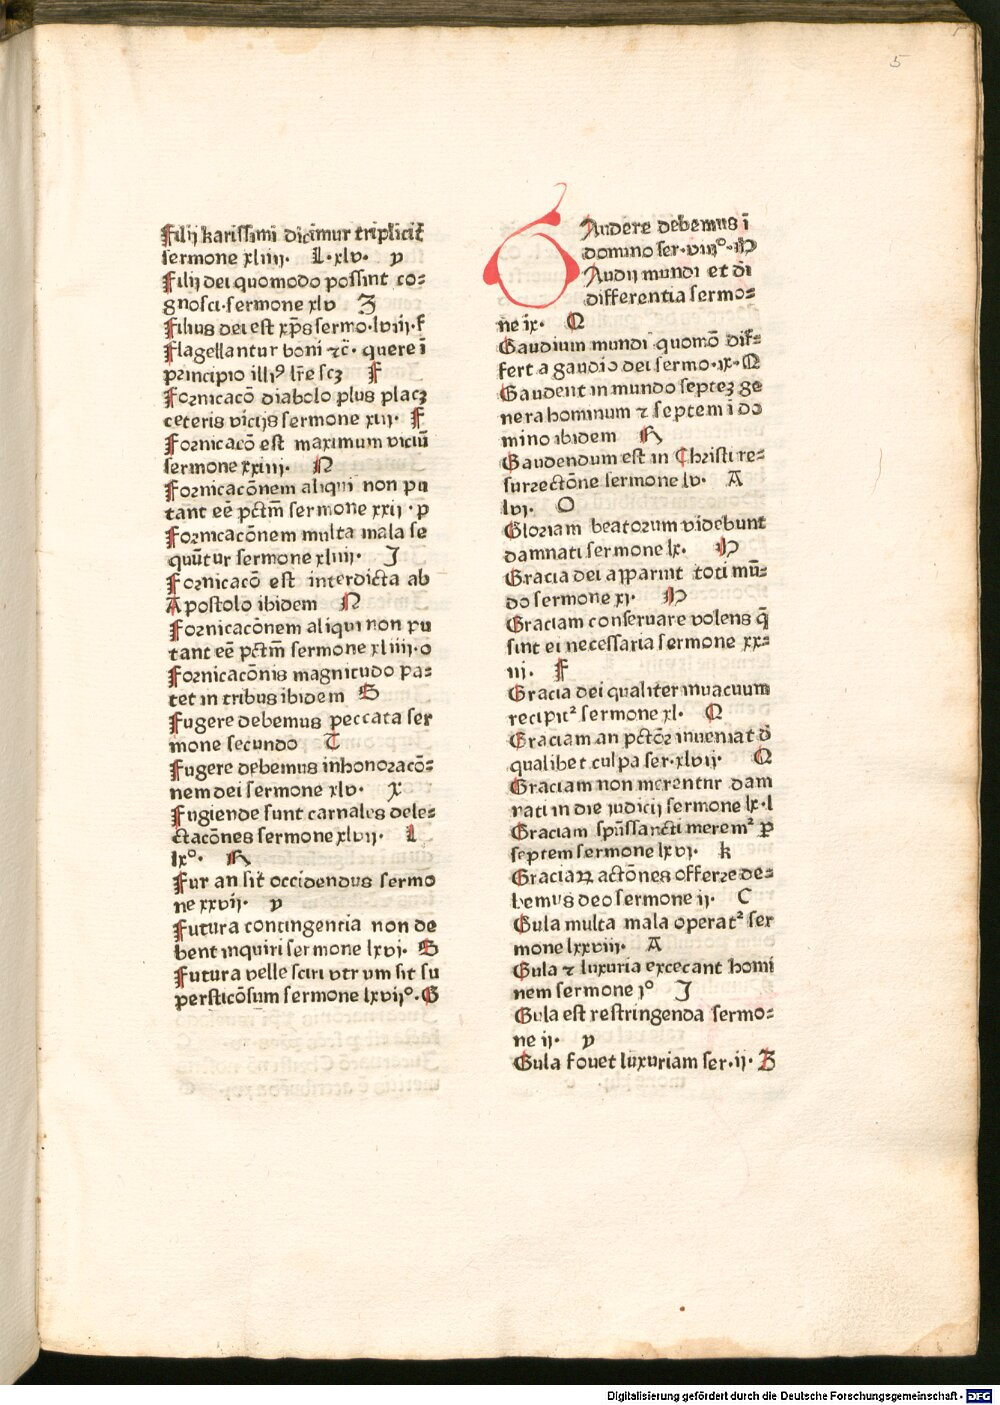 5
Filij karissimi dicimur triplicit̄
sermone xliiij. L.xlv. p
Filij dei quomodo possint co=
gnosci.sermone xlv Z
Filius dei est xp̄s sermo.lviij.f
Flagellantur boni ⁊c̄. quere ī
principio illiꝰ lr̄e scꝫ F
Fornicacō diabolo plus placꝫ
ceteris vicijs sermone xiij. F
Fornicacō est maximum viciū
sermone xxiiij. N
Fornicacōnem aliqui non pu
tant eē pctm̄ sermone xxij .p
Fornicacōnem multa mala se
quūtur sermone xliiij. J
Fornicacō est interdicta ab
Apostolo ibidem N
Fornicacōnem aliqui non pu
tant eē pctm̄ sermone xliiij.o
Fornicacōnis magnitudo pa=
tet in tribus ibidem S
Fugere debemus peccata ser
mone secundo T
Fugere debemus inhonoracō=
nem dei sermone xlv. X
Fugiende sunt carnales dele=
ctacōnes sermone xlvij. L
lxº. K
Fur an sit occidendus sermo
ne xxvij. p
Futura contingentia non de
bent inquiri sermone lxvj. B
Futura velle sciri vtrum sit su
persticōsum sermone lxvijº.G
GAudere debemus ī
domino ser.viijº.M
Gaudij mundi et dī
differentia sermo=
ne ix. Q
Gaudium mundi quomō dif=
fert a gaudio dei sermo.ix.Q
Gaudent in mundo septeꝫ ge
nera hominum ⁊ septem ī do
mino ibidem K
Gaudendum est in Christi re=
surrectōne sermone lv. A
lvj. O
Gloriam beatorum videbunt
damnati sermone lx. M
Gracia dei apparuit toti mū=
do sermone xj. M
Graciam conseruare volens q̄
sint ei necessaria sermone xx=
iij. F
Gracia dei qualiter inuacuum
recipit² sermone xl. Q
Graciam an pctōꝛ inueniat d̄
qualibet culpa ser.xlvij. Q
Graciam non merentur dam
nati in die iudicij sermone lx.l
Graciam spūssancti merem² ꝑ
septem sermone lxvj. k
Graciaꝝ actōnes offerre de=
bemus deo sermone ij. C
Gula multa mala operat² ser
mone lxxviij. A
Gula ⁊ luxuria excecant homi
nem sermone jº J
Gula est restringenda sermo=
ne ij. p
Gula fouet luxuriam ser.ij. Z
Digitalisierung gefördert durch die Deutsche Forschungsgemeinschaft - DFG